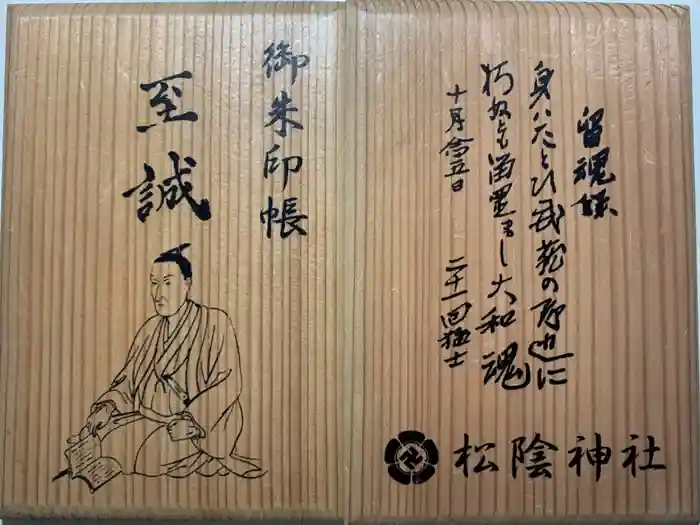 御朱印帳
至誠
留魂録
身ハたとひ武蔵の野辺に
朽ぬとも留置まし大和魂
十月念五日　二十一回猛士
松陰神社